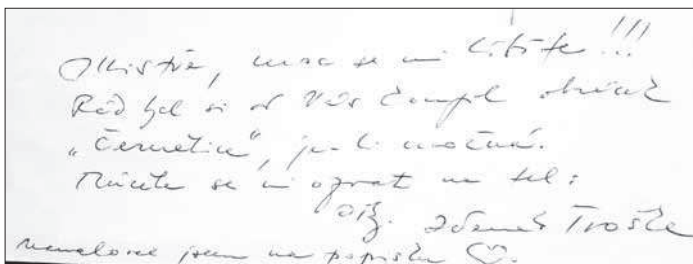 Mistře, moc se mi líbíte!!!
Rád bych si od Vás koupil obrázek
„Černětice“, je-li možná.
Můžete se mi ozvat na tel:
Zdeněk Troška
jsem na popisku ♡.